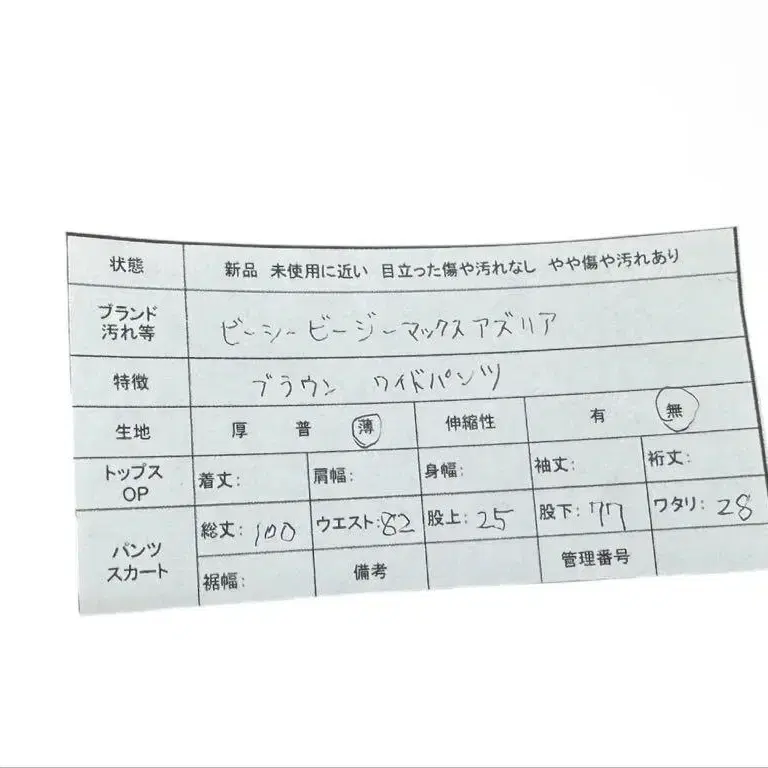 状態 新品 未使用に近い 目立った傷や汚れなし やや傷や汚れあり
ブランド
汚れ等 ビーシービージーマックスアズリア
特徴 ブラウン ワイドパンツ
生地 厚 普 薄 伸縮性 有 無
トップス
OP 着丈: 肩幅: 身幅: 袖丈: 裄丈:
パンツ
スカート 総丈: 100 ウエスト: 82 股上: 25 股下: 77 ワタリ: 28
裾幅: 備考 管理番号